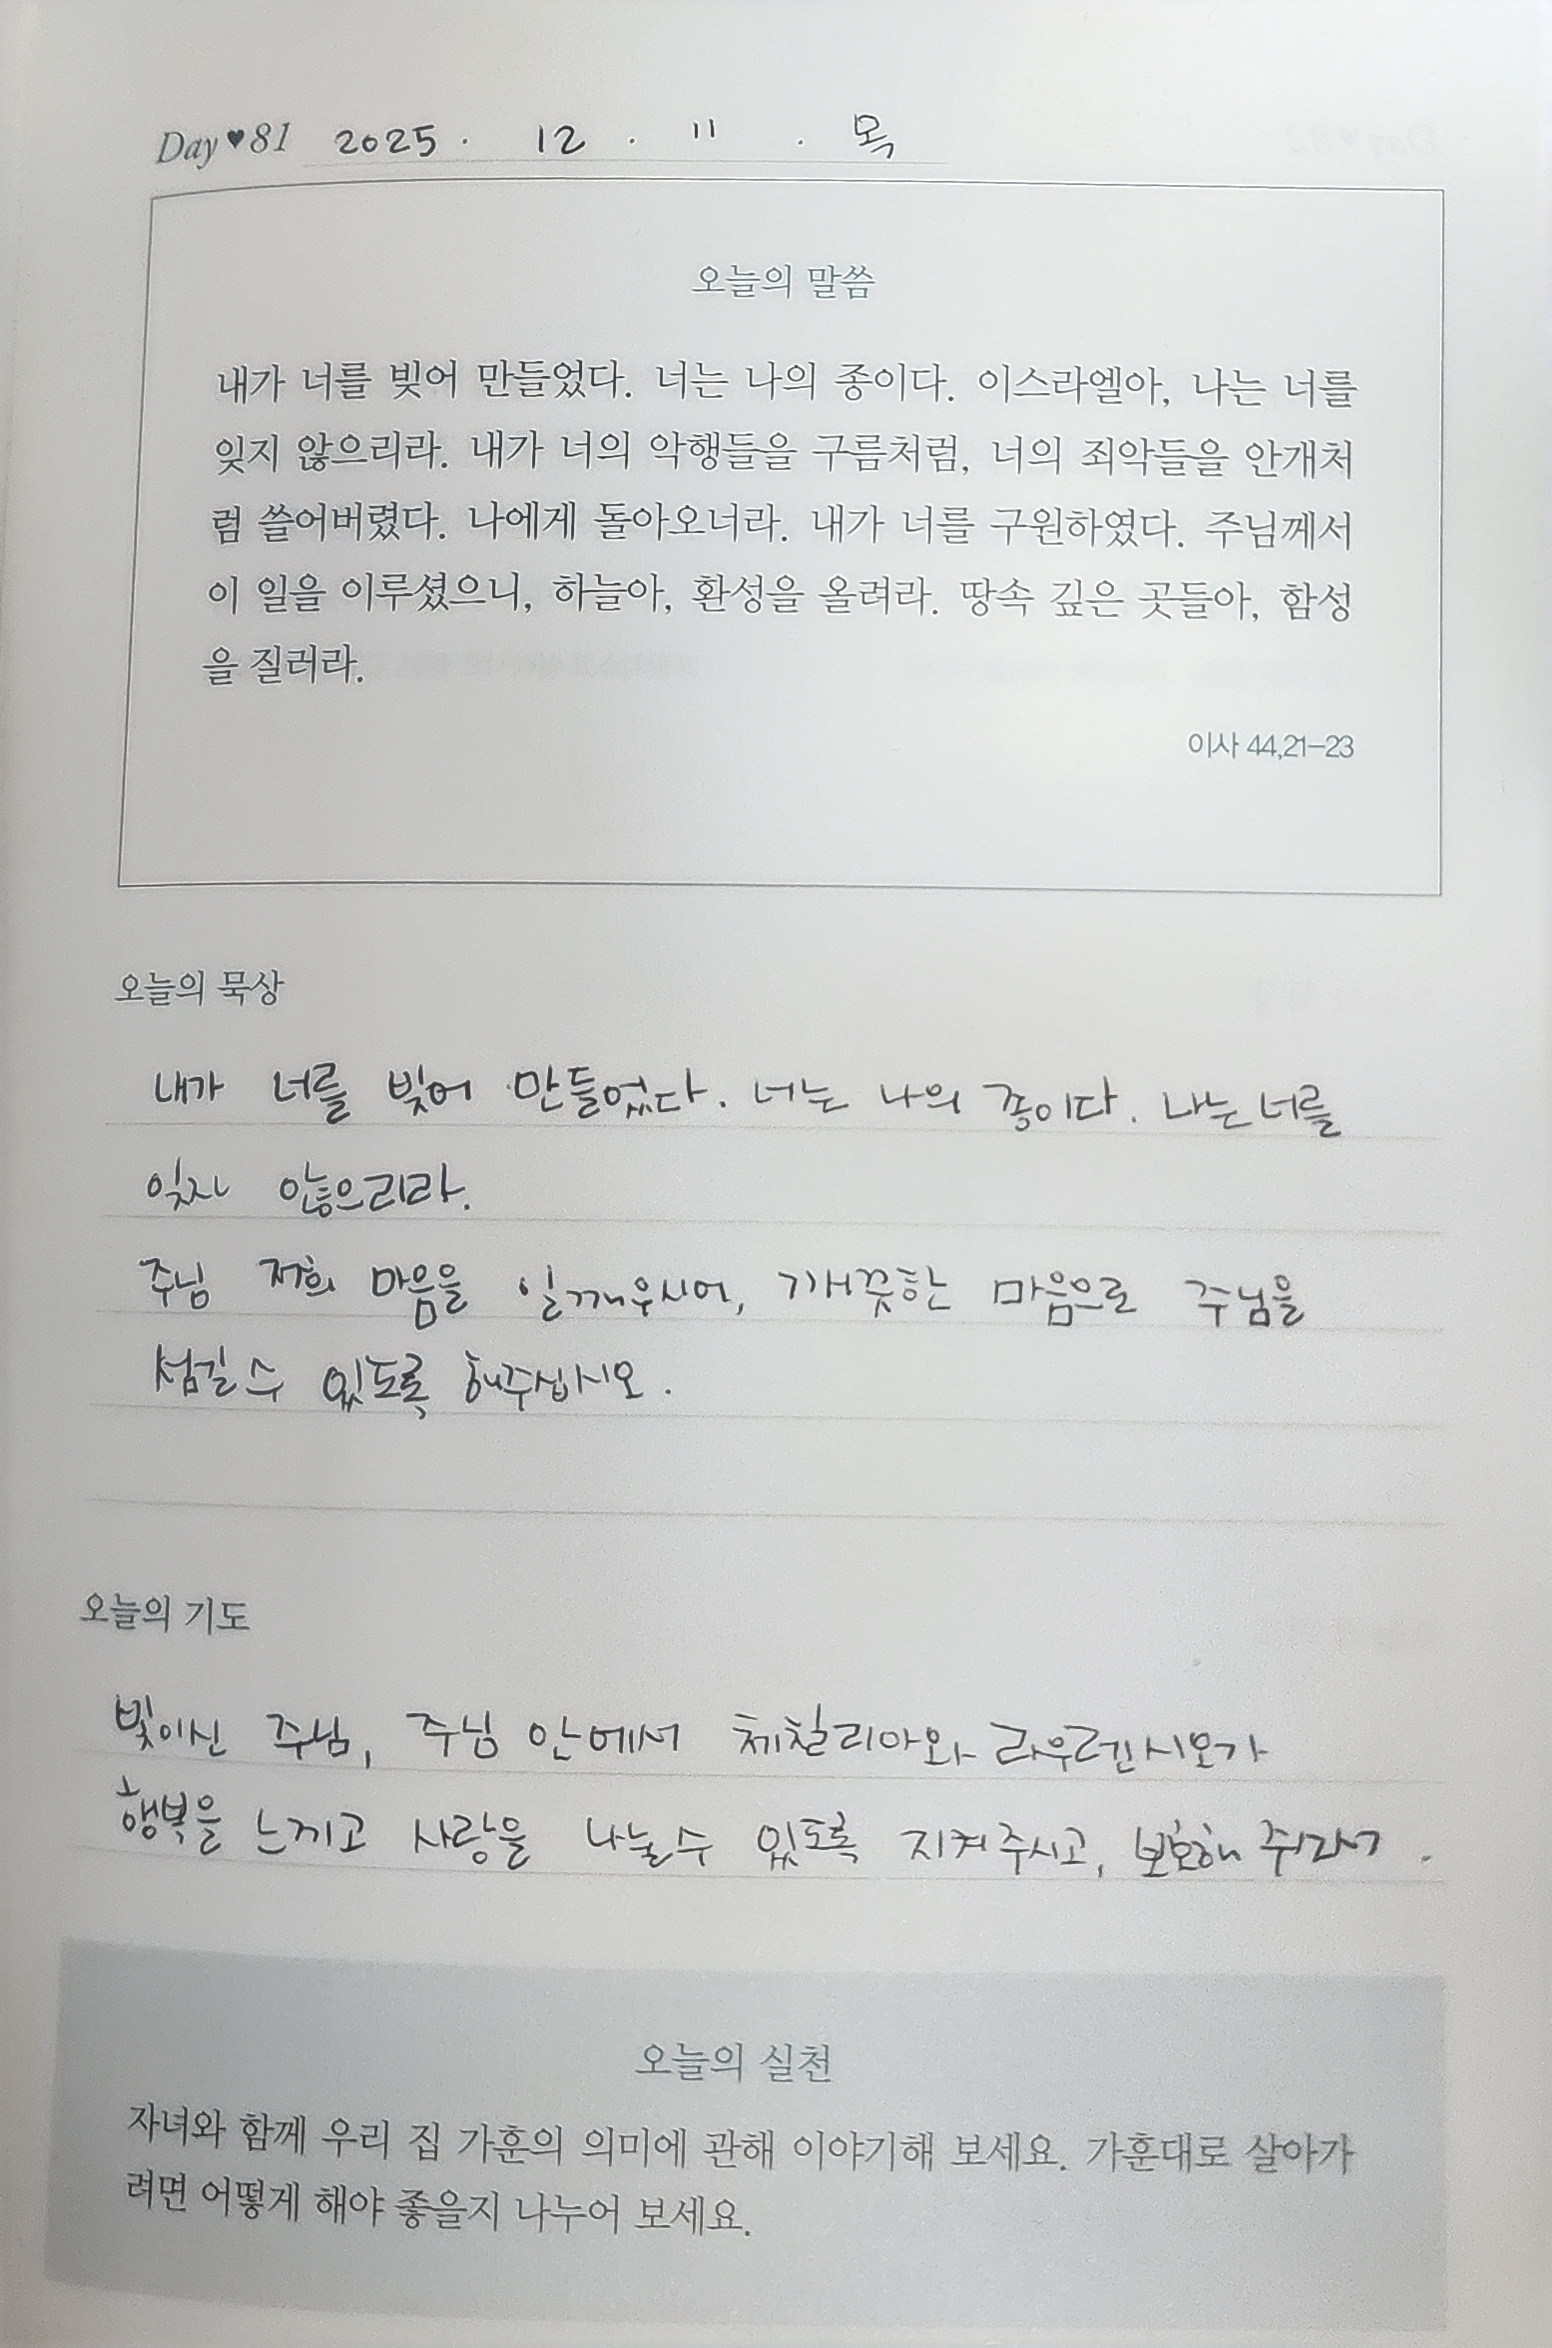 Day♥81 2025. 12. 11. 목
오늘의 말씀
내가 너를 빚어 만들었다. 너는 나의 종이다. 이스라엘아, 나는 너를
잊지 않으리라. 내가 너의 악행들을 구름처럼, 너의 죄악들을 안개처
럼 쓸어버렸다. 나에게 돌아오너라. 내가 너를 구원하였다. 주님께서
이 일을 이루셨으니, 하늘아, 환성을 올려라. 땅속 깊은 곳들아, 함성
을 질러라.
이사 44,21-23
오늘의 묵상
내가 너를 빚어 만들었다. 너는 나의 종이다. 나는 너를
잊지 않으리라.
주님 저희 마음을 일깨우시어, 깨끗한 마음으로 주님을
섬길 수 있도록 해주십시오.
오늘의 기도
빛이신 주님, 주님 안에서 체칠리아와 라우렌시오가
행복을 느끼고 사랑을 나눌 수 있도록 지켜주시고, 보호해
오늘의 실천
자녀와 함께 우리 집 가훈의 의미에 관해 이야기해 보세요. 가훈대로 살아가
려면 어떻게 해야 좋을지 나누어 보세요.